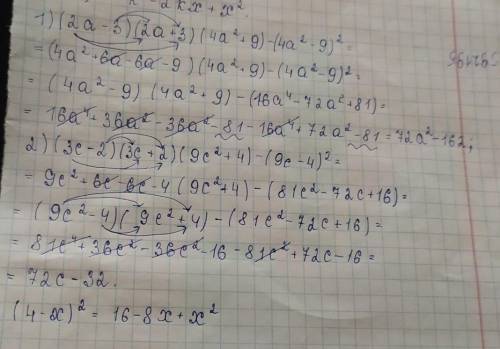 - 2kx + x².
1) (2a-3)(2a+3)(4a²+9)-(4a²-9)²=
=(4a²+6a-6a-9)(4a²+9)-(4a²-9)²=
=(4a²-9)(4a²+9)-(16a⁴-72a²+81)=
=16a⁴+36a²-36a²-81-16a⁴+72a²-81=72a²-162;
2)(3c-2)(3c+2)(9c²+4)-(9c-4)²=
=9c²+6c-6c-4(9c²+4)-(81c²-72c+16)=
=(9c²-4)(9c²+4)-(81c²-72c+16)=
=81c⁴+36c²-36c²-16-81c²+72c-16=
=72c-32.
(4-x)²=16-8x+x²